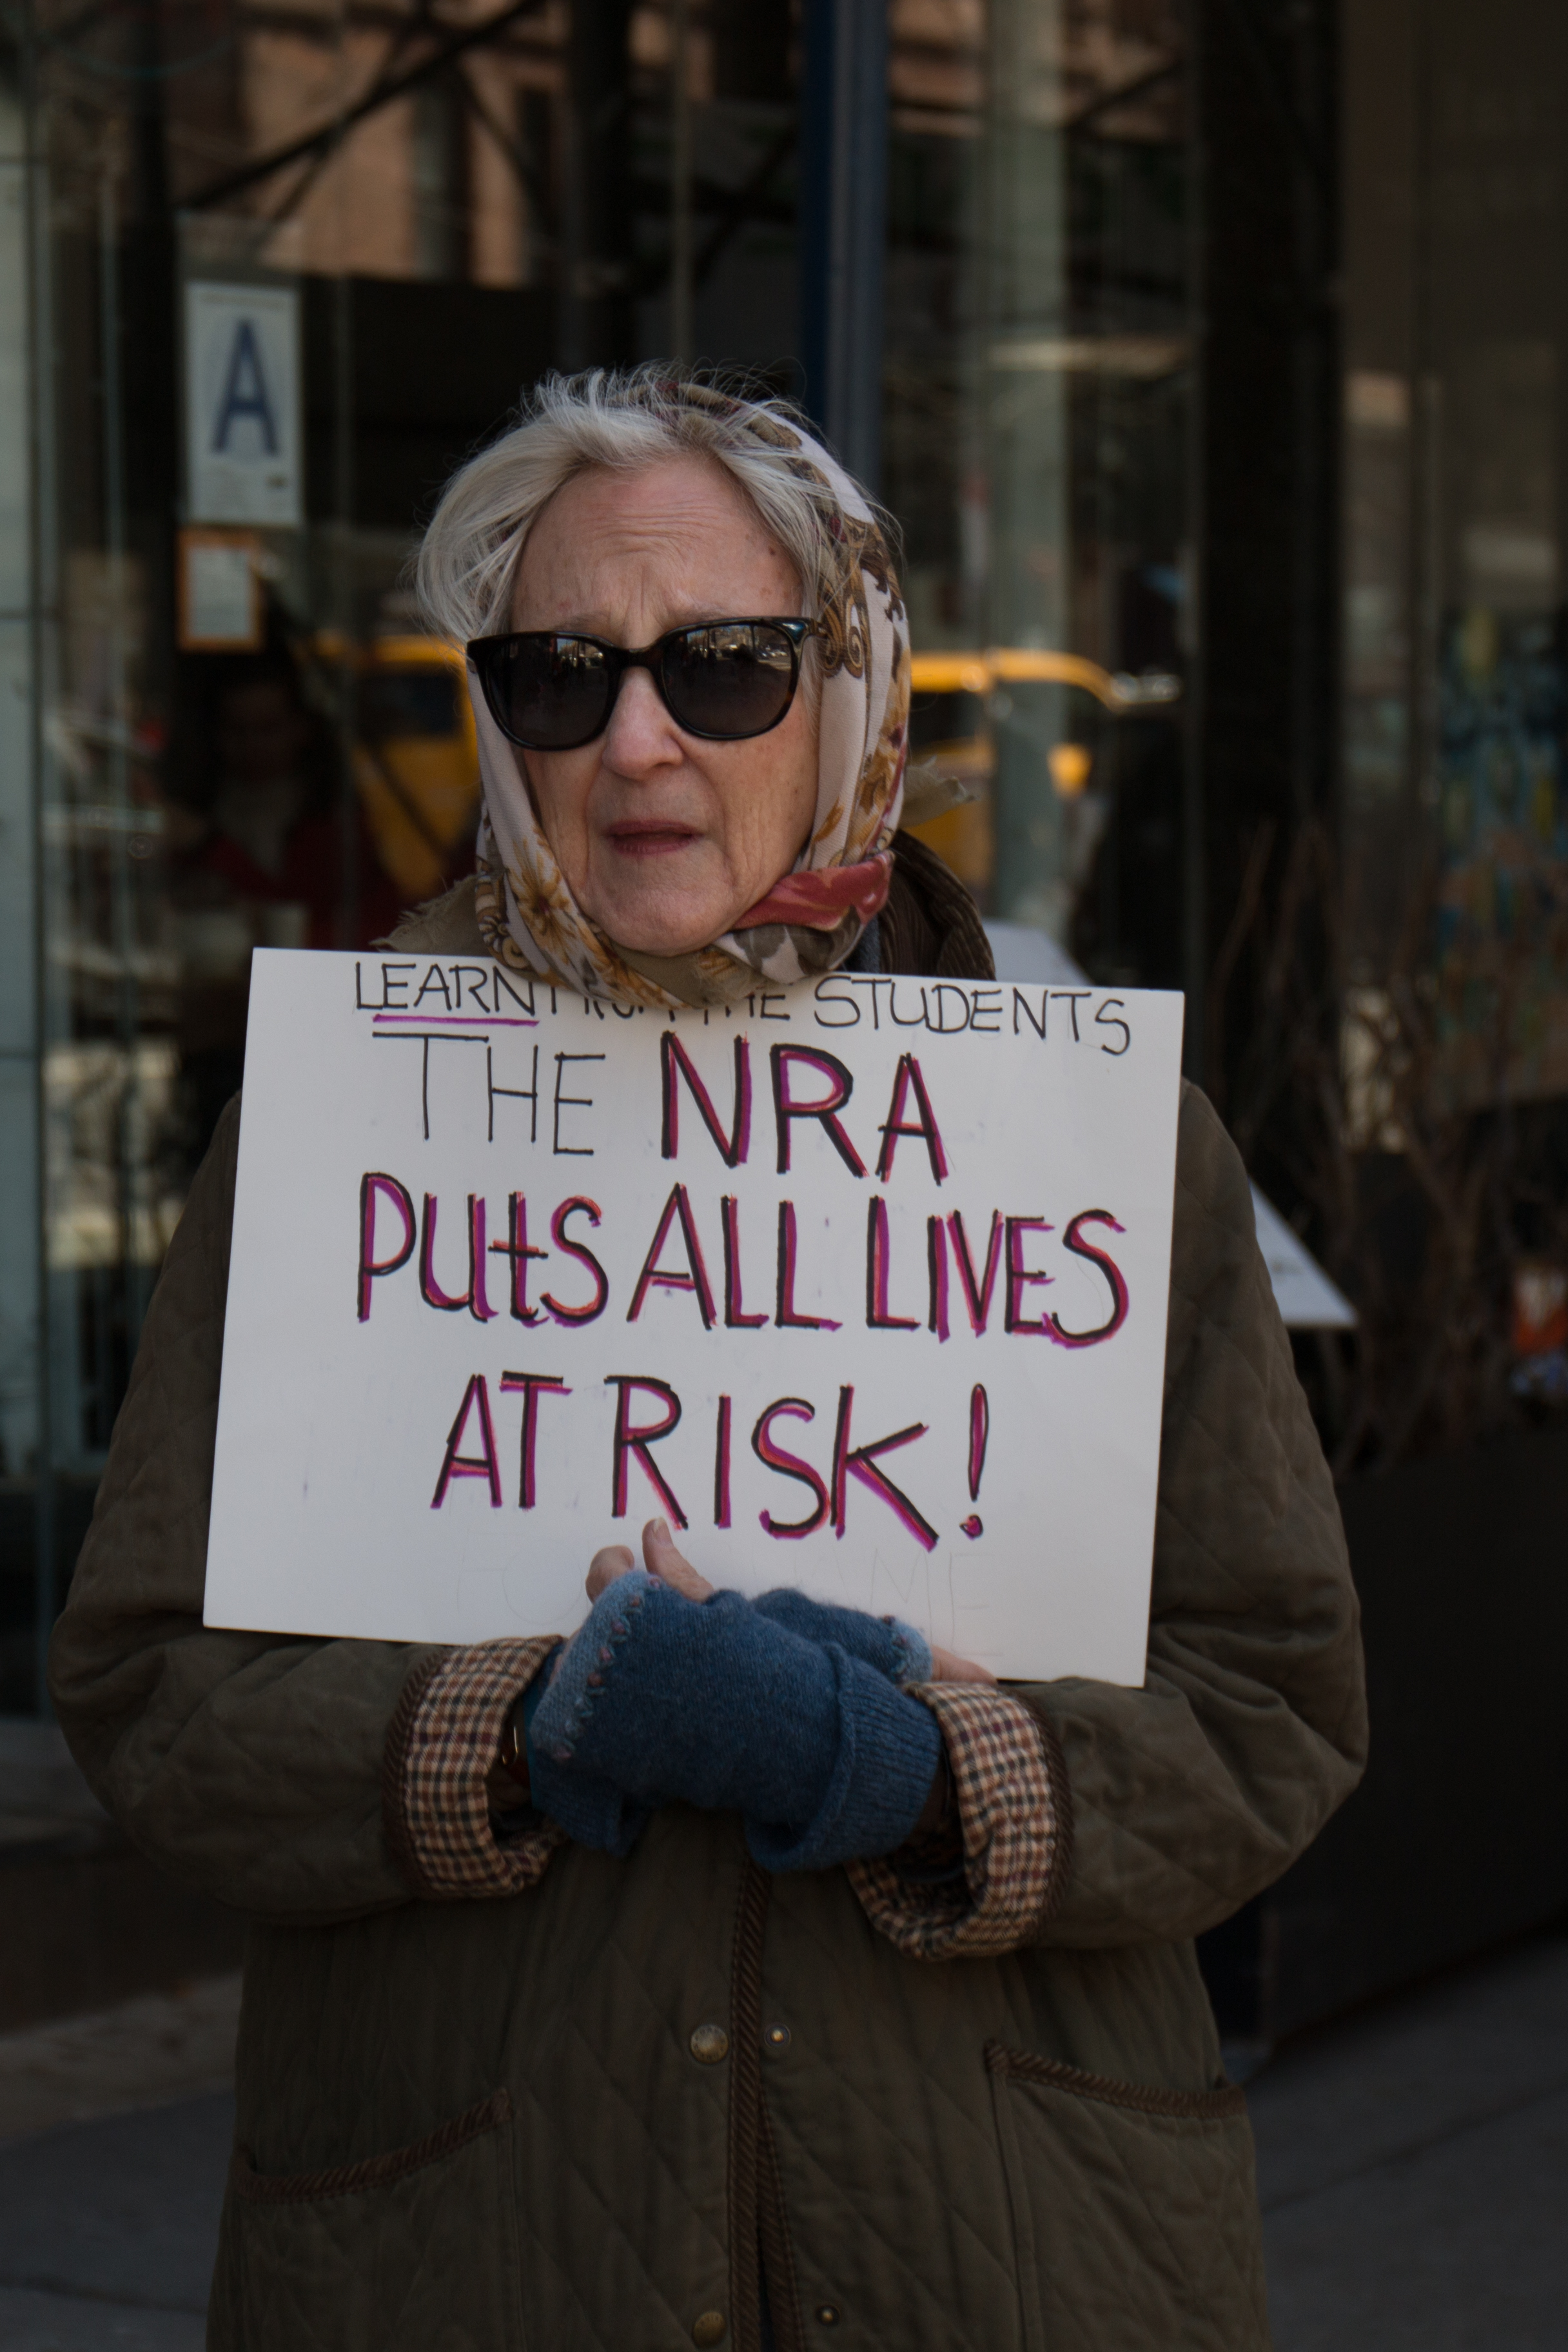 A
LEARN THE STUDENTS
THE NRA
PUtS ALL LIVES
AT RISK!